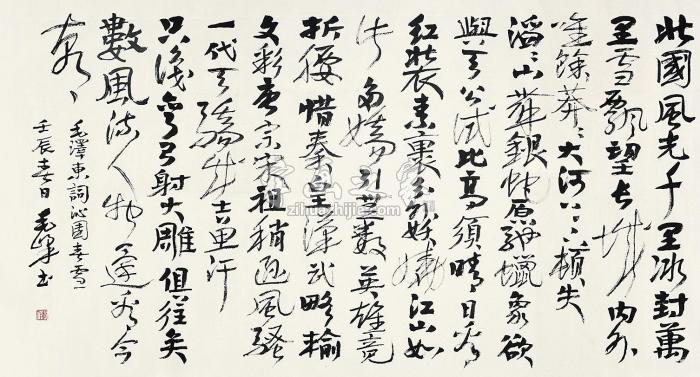 北國風光千里冰封萬
里雪飄望長城内外
唯餘莽々大河上下頓失
滔々山舞銀蛇原馳蠟象欲
與天公試比高須晴日看
紅裝素裹分外妖嬈江山如
此多嬌引無數英雄競
折腰惜秦皇漢武略輸
文彩唐宗宋祖稍遜風騷
一代天驕成吉思汗
只識彎弓射大雕俱往矣
數風流人物還看今
朝
毛澤東詞沁園春雪
壬辰春日毛峰書
字画世界
zihuashijie.com